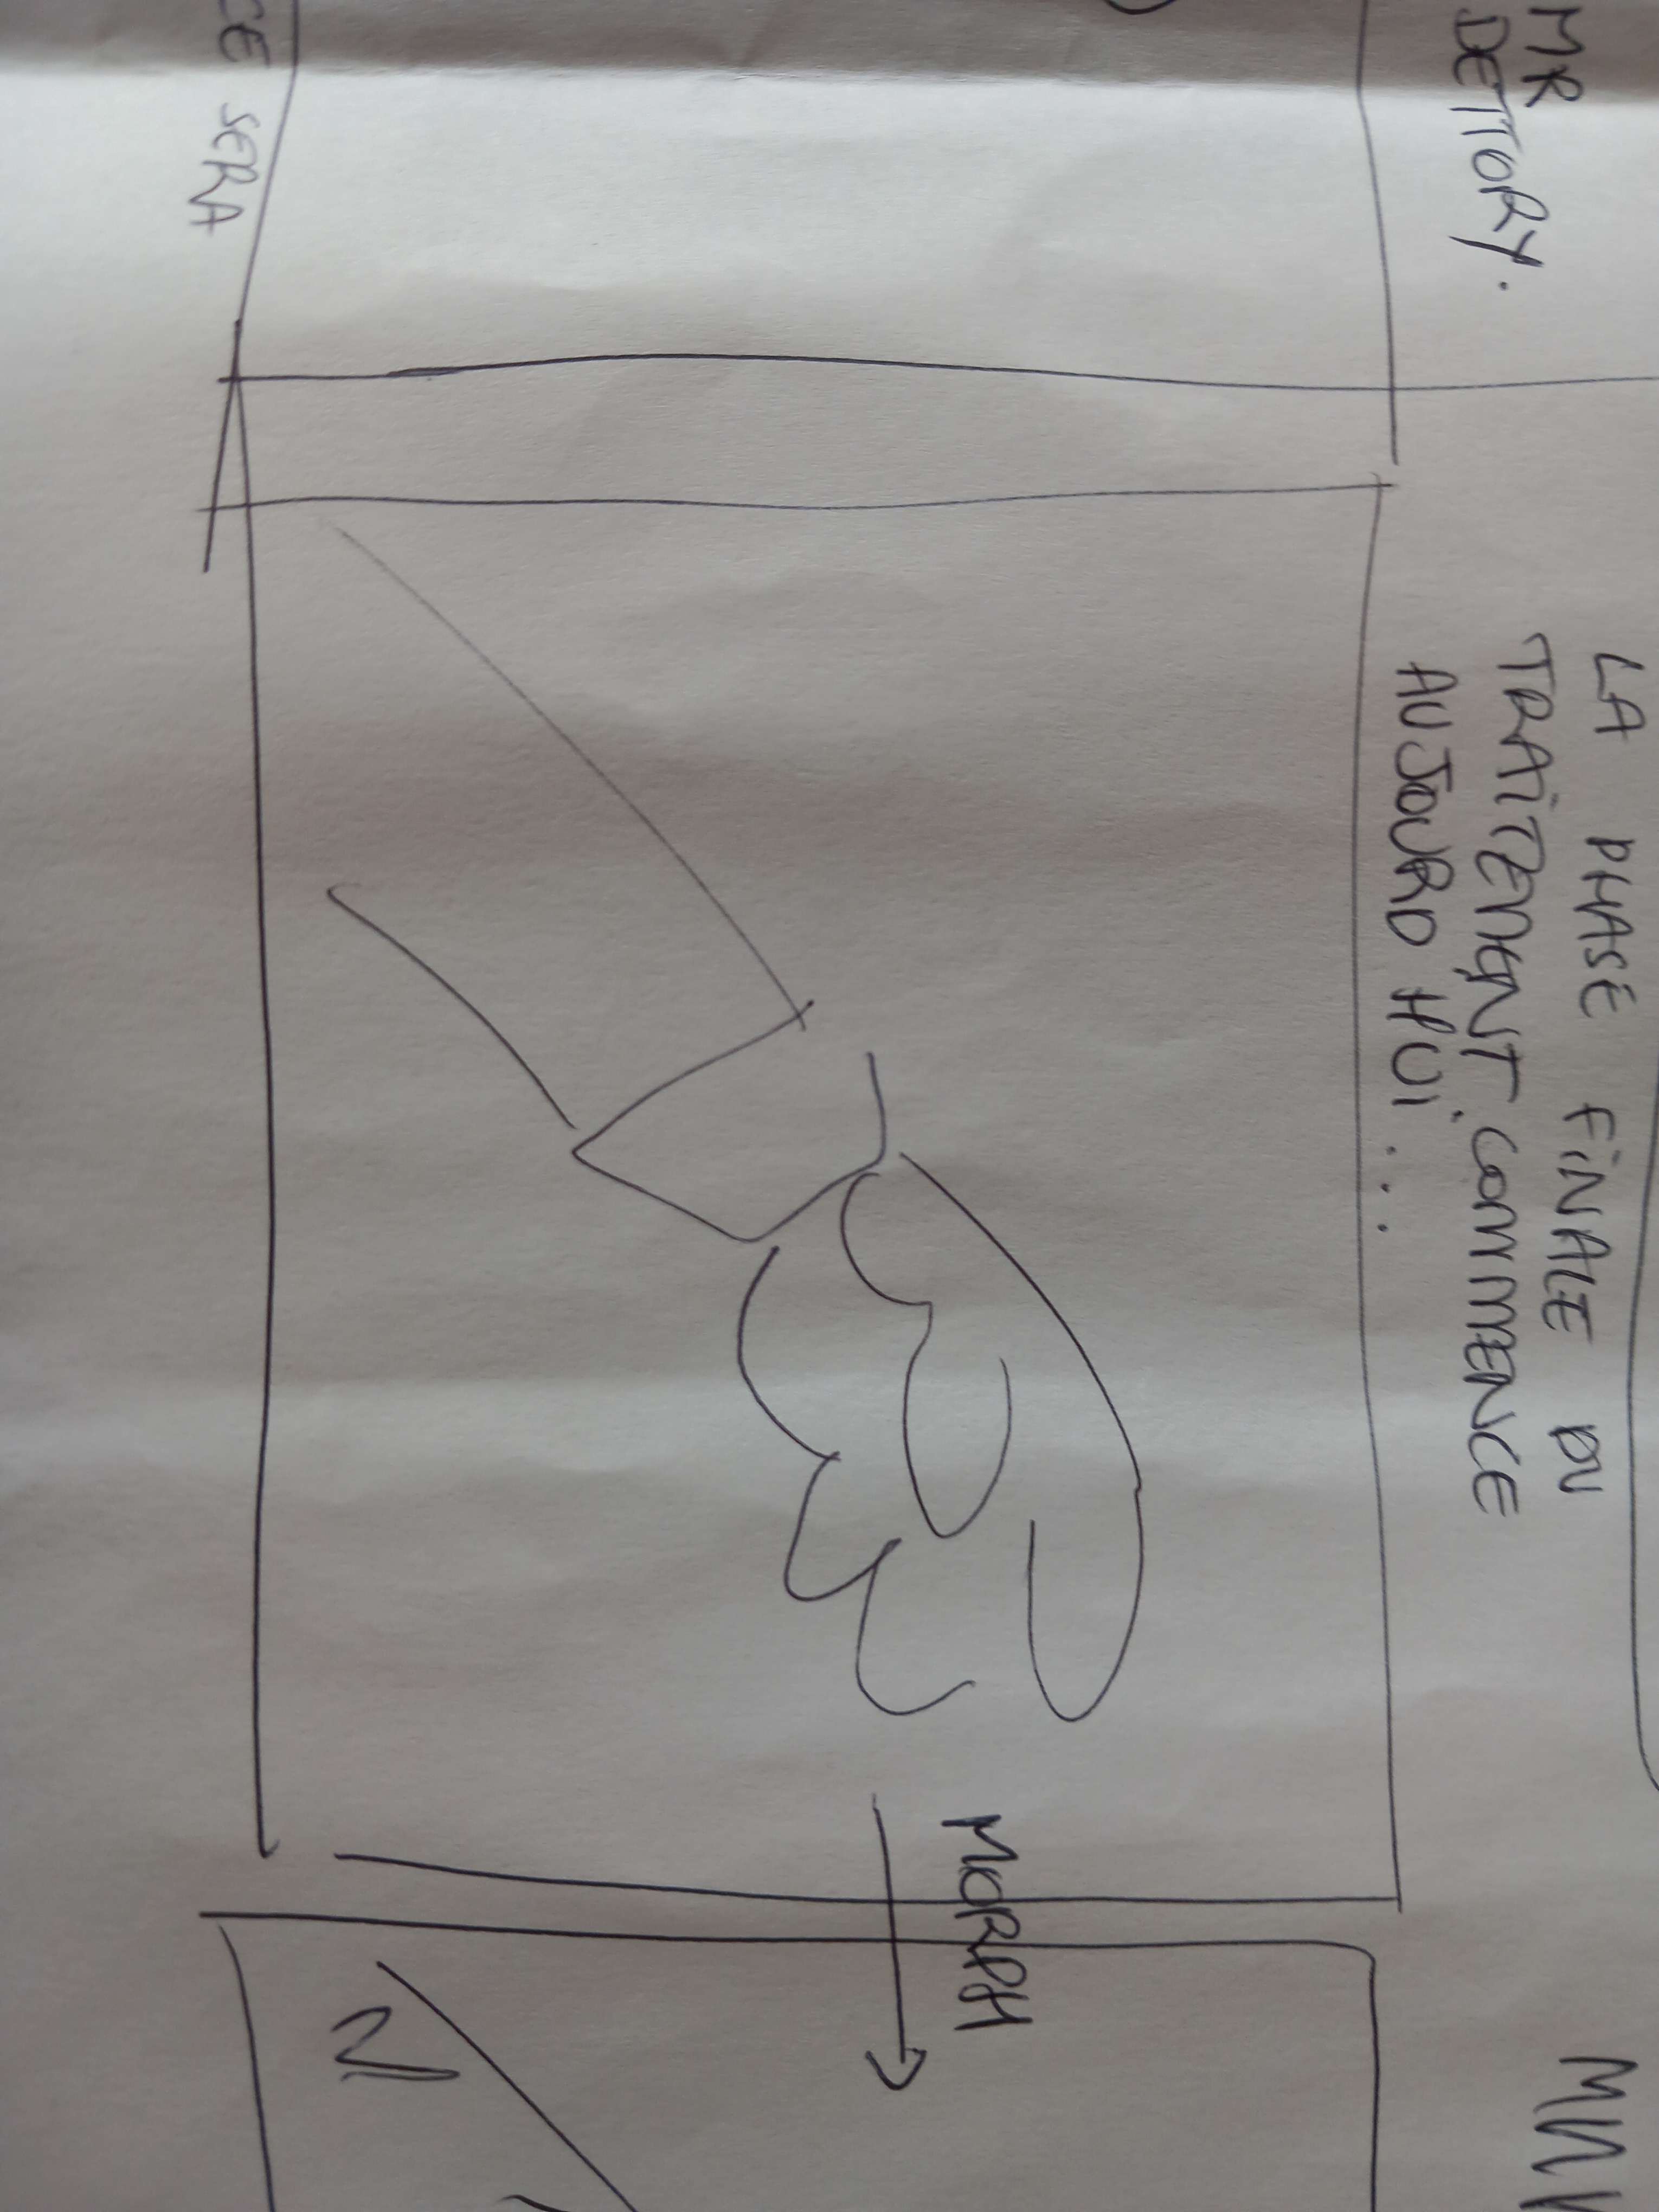 MR
DETTORY.
CE SERA
LA PHASE FINALE DU
TRAITEMENT COMMENCE
AUJOURD HUI...
MORPH